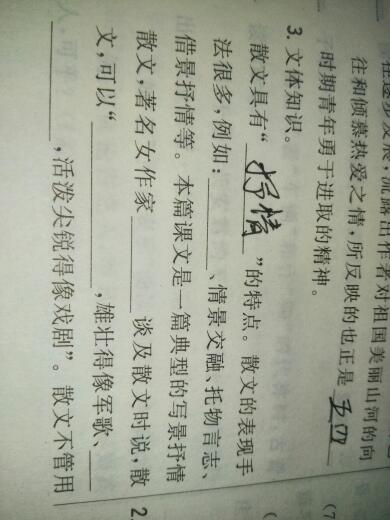 在逐步发展,流露出作者对祖国美丽山河的向
往和倾慕热爱之情,所反映的也正是 五四
时期青年勇于进取的精神。
3. 文体知识。
散文具有“ 抒情 ”的特点。散文的表现手
法很多,例如:______、情景交融、托物言志、
借景抒情等。本篇课文是一篇典型的写景抒情
散文,著名女作家______谈及散文时说,散
文,可以“______,雄壮得像军歌、______
______,活泼尖锐得像戏剧”。散文不管用
(7
(
2.